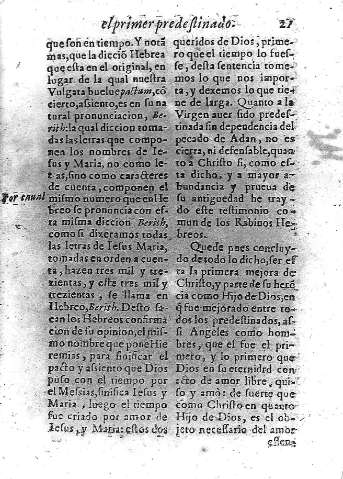 el primer predestinado. 27
que son en tiempo. Y notã
mas, que la dicciõ Hebrea
que esta en el original, en
lugar de la qual nuestra
Vulgata buelue pactum, cõ
cierto, asiento, es en su na
tural pronunciacion, Be-
rish: la qual diccion toma-
das las letras que compo-
nen los nombres de Iesus
y Maria, no como le-
tras, sino como caracteres
de cuenta, componen el
Por cnual
mismo numero que en He
breo se pronuncia con es-
ta misma diccion Berish,
como si dixeramos todas
las letras de Iesus Maria,
tomadas en orden a cuen-
ta, hazen tres mil y tre-
zientas, y este tres mil y
trezientas, se llama en
Hebreo, Berish. Desto sa-
can los Hebreos confirma
cion de su opinion, el mis-
mo nombre que pone Hie
remias, para significar el
pacto y asiento que Dios
puso con el tiempo por
el Messias, sinifica Iesus y
Maria, luego el tiempo
fue criado por amor de
Iesus, y Maria: estos dos
queridos de Dios, prime-
ro que el tiempo lo fues-
se, desta sentencia tome-
mos lo que nos impor-
ta, y dexemos lo que tie-
ne de larga. Quanto a la
Virgen auer sido predes-
tinada sin dependencia del
pecado de Adan, no es
cierta, ni defensable, quan-
to a Christo si, como es-
ta dicho, y a mayor a-
bundancia y prueua de
su antiguedad he tray-
do este testimonio co-
mun de los Rabinos He-
breos.
Quede pues concluy-
do de todo lo dicho, ser es-
ta la primera mejora de
Christo, y parte de su herẽ
cia como Hijo de Dios, en
q̃ fue mejorado entre to-
dos los predestinados, as-
si Angeles como hom-
bres, que el fue el pri-
mero, y lo primero que
Dios en su eternidad con
acto de amor libre, qui-
so y amò: de suerte que
como Christo en quanto
Hijo de Dios, es el ob-
jeto necessario del amor
essen-